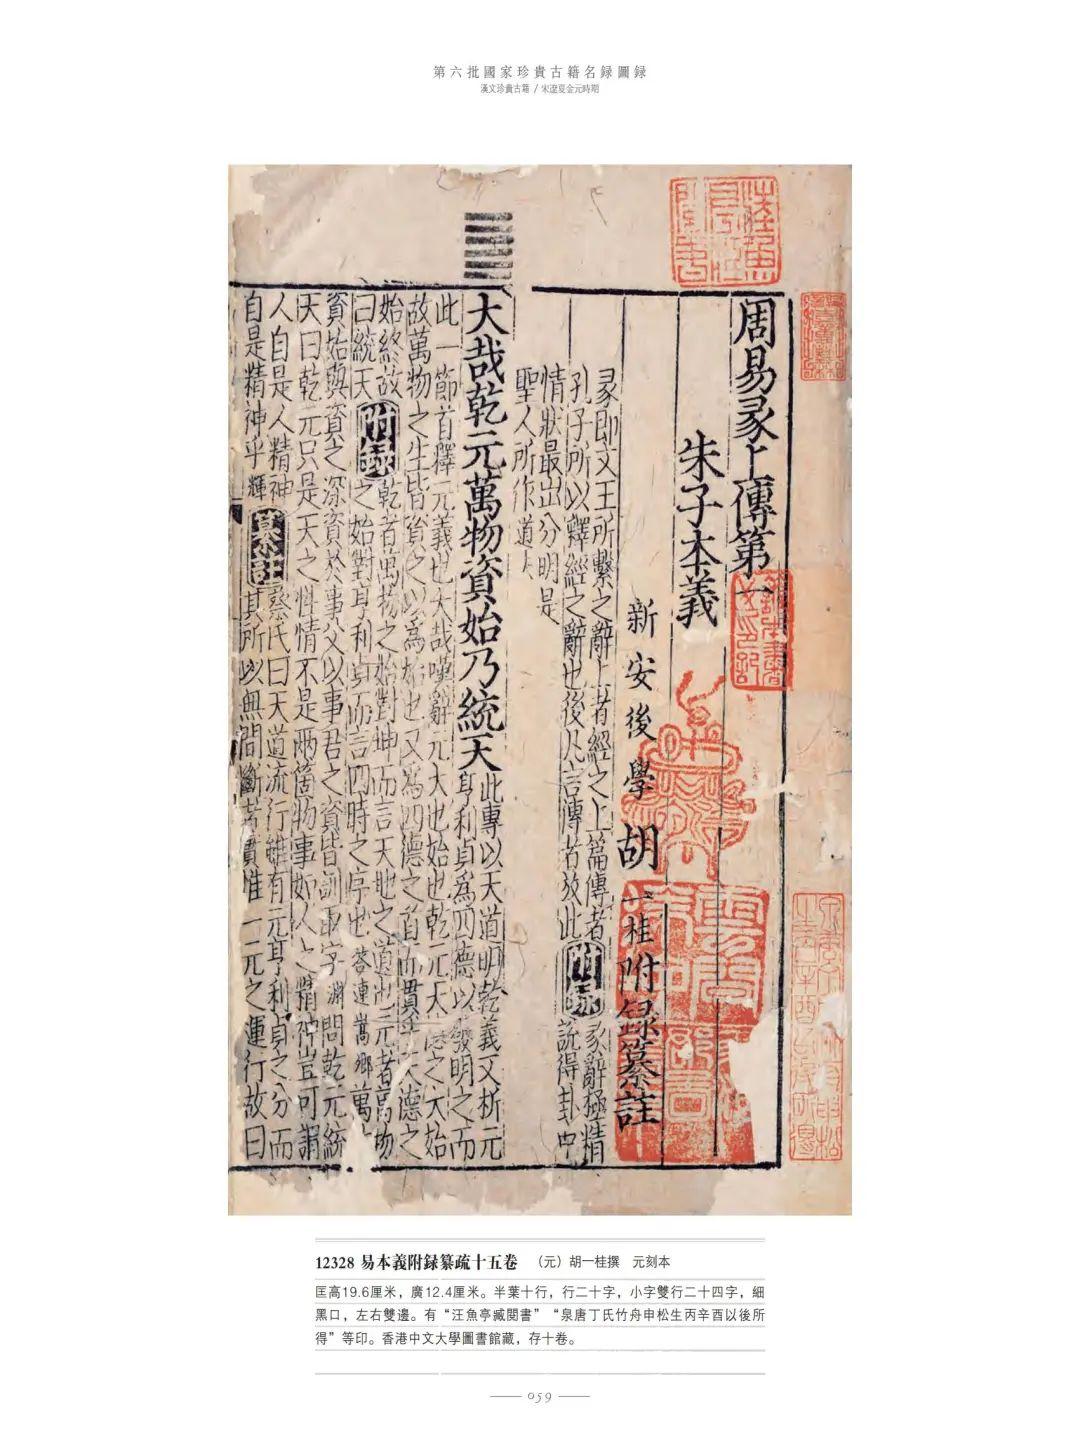 第六批國家珍貴古籍名録圖録
漢文珍貴古籍 / 宋遼夏金元時期
周易彖上傳第一
朱子本義
新安後學 胡一桂附録纂註
彖即文王所繫之辭上者經之上篇傳者
孔子所以釋經之辭也後凡言傳者放此 附録 彖辭極精
說得卦中
情狀最出分明是
聖人所作道夫
大哉乾元萬物資始乃統天 此專以天道明乾義又析元
亨利貞為四德以發明之而
此一節首釋元義也大哉嘆辭元大也始也乾元天德之大始
故萬物之生皆資之以為始也又為四德之首而貫乎天德之
始終故
曰統天 附録 乾者萬物之始對坤而言天地之道也元者萬物
之始對亨利貞而言四時之序也 荅連嵩卿 萬物
資始與資之深資於事父以事君之資皆訓取字 淵 問乾元統
天曰乾元只是天之性情不是兩箇物事如人之精神豈可謂
人自是人精神
自是精神乎 輝 纂註 蔡氏曰天道流行雖有元亨利貞之分而
其所以無間斷者貫惟一元之運行故曰
12328 易本義附録纂疏十五卷 （元）胡一桂撰 元刻本
匡高19.6厘米，廣12.4厘米。半葉十行，行二十字，小字雙行二十四字，細
黑口，左右雙邊。有“汪魚亭臧閱書”“泉唐丁氏竹舟申松生丙辛酉以後所
得”等印。香港中文大學圖書館藏，存十卷。
059